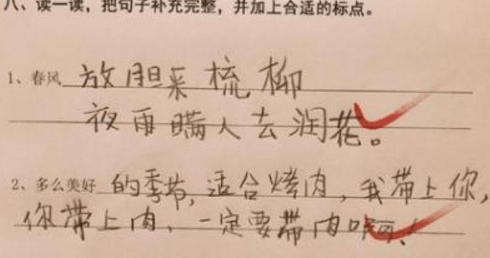 八、读一读，把句子补充完整，并加上合适的标点。
1、春风 放胆采梳柳
夜雨瞒人去润花。
2、多么美好 的季节，适合烤肉，我带上你，
你带上肉，一定要带肉啊！